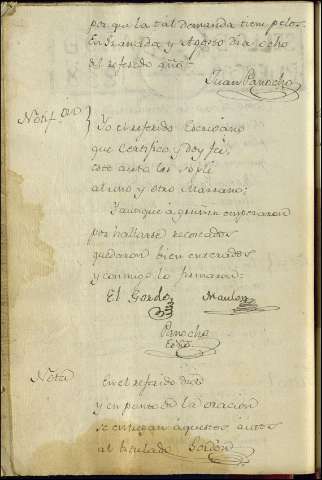 por que la tal demanda tiene pelos.
En Granada y Agosto dia ocho
del referido año=
Juan Panocho
Notif.on
Yo el referido Escribano
que Certifico, y doy fee,
este auto les
al uno y otro Marrano;
Y aunque á gruñir empezaron
por hallarse recostados
quedaron bien enterados
y conmigo lo firmaron:
El Gordo
Panocho
Esno
Nota
En el referido dia
y en punto de la oracion
se entregan aquestos autos
al titulado Gordon